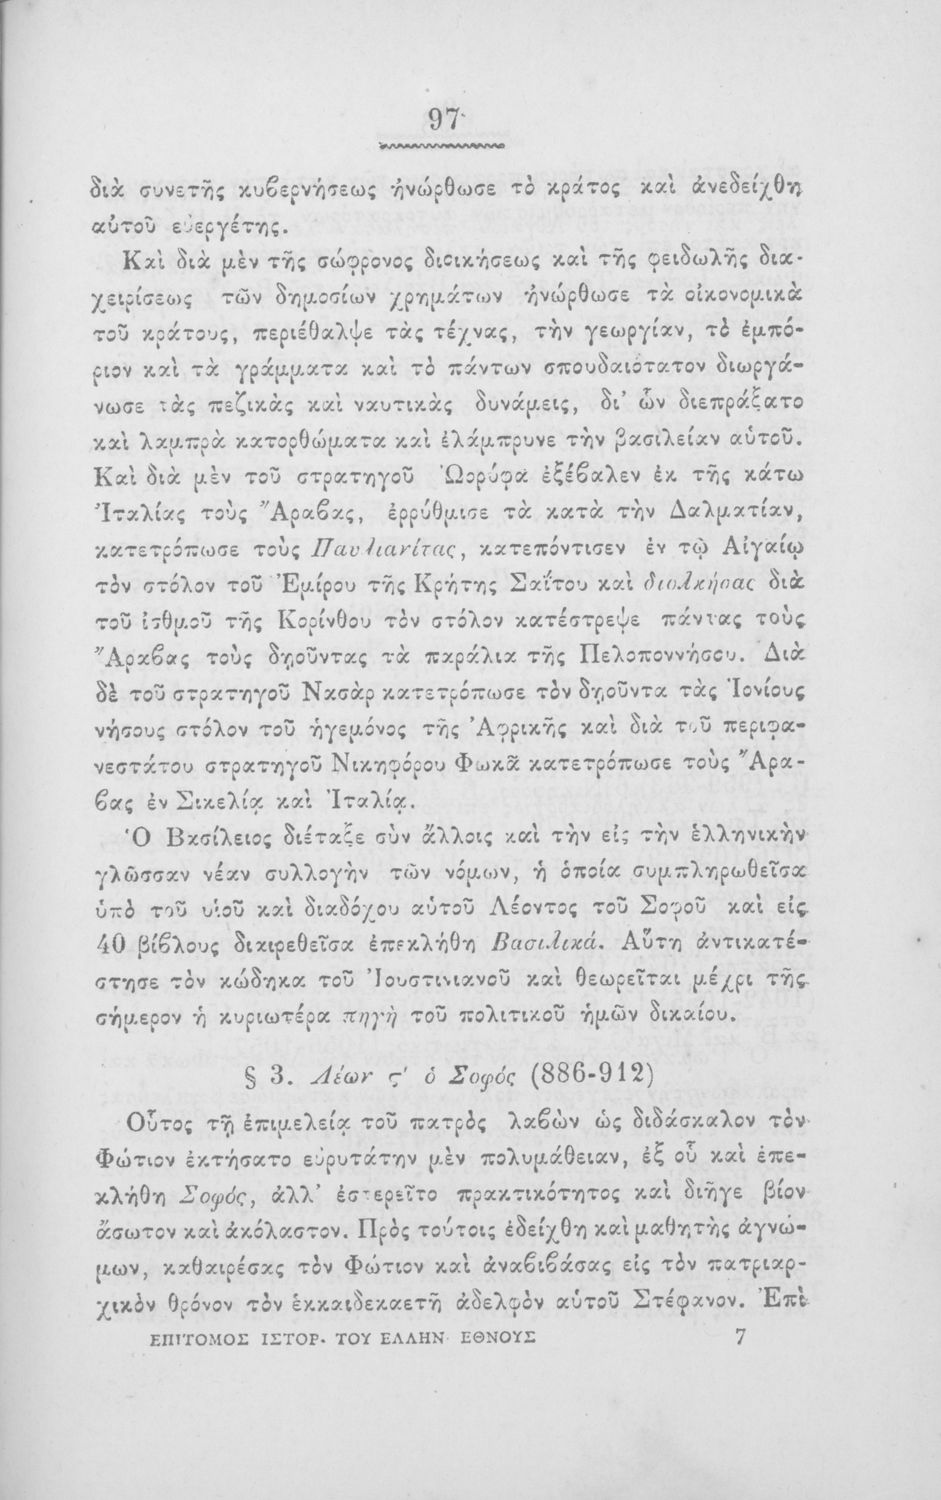 97
διὰ συνετῆς κυβερνήσεως ἠνώρθωσε τὸ κράτος καὶ ἀνεδείχθη
αὐτοῦ εὐεργέτης.
Καὶ διὰ μὲν τῆς σώφρονος διοικήσεως καὶ τῆς φειδωλῆς δια-
χειρίσεως τῶν δημοσίων χρημάτων ἠνώρθωσε τὰ οἰκονομικὰ
τοῦ κράτους, περιέθαλψε τὰς τέχνας, τὴν γεωργίαν, τὸ ἐμπό-
ριον καὶ τὰ γράμματα καὶ τὸ πάντων σπουδαιότατον διωργά-
νωσε τὰς πεζικὰς καὶ ναυτικὰς δυνάμεις, δι' ὧν διεπράξατο
καὶ λαμπρὰ κατορθώματα καὶ ἐλάμπρυνε τὴν βασιλείαν αὐτοῦ.
Καὶ διὰ μὲν τοῦ στρατηγοῦ Ὠορύφα ἐξέβαλεν ἐκ τῆς κάτω
Ἰταλίας τοὺς Ἄραβας, ἐρρύθμισε τὰ κατὰ τὴν Δαλματίαν,
κατετρόπωσε τοὺς Παυλιανίτας, κατεπόντισεν ἐν τῷ Αἰγαίῳ
τὸν στόλον τοῦ Ἐμίρου τῆς Κρήτης Σαΐτου καὶ διολκήσας διὰ
τοῦ ἰσθμοῦ τῆς Κορίνθου τὸν στόλον κατέστρεψε πάντας τοὺς
Ἄραβας τοὺς δῃοῦντας τὰ παράλια τῆς Πελοποννήσου. Διὰ
δὲ τοῦ στρατηγοῦ Νασὰρ κατετρόπωσε τὸν δῃοῦντα τὰς Ἰονίους
νήσους στόλον τοῦ ἡγεμόνος τῆς Ἀφρικῆς καὶ διὰ τοῦ περιφα-
νεστάτου στρατηγοῦ Νικηφόρου Φωκᾶ κατετρόπωσε τοὺς Ἄρα-
βας ἐν Σικελίᾳ καὶ Ἰταλίᾳ.
Ὁ Βασίλειος διέταξε σὺν ἄλλοις καὶ τὴν εἰς τὴν ἑλληνικὴν
γλῶσσαν νέαν συλλογὴν τῶν νόμων, ἡ ὁποία συμπληρωθεῖσα
ὑπὸ τοῦ υἱοῦ καὶ διαδόχου αὐτοῦ Λέοντος τοῦ Σοφοῦ καὶ εἰς
40 βίβλους διαιρεθεῖσα ἐπεκλήθη Βασιλικά. Αὕτη ἀντικατέ-
στησε τὸν κώδηκα τοῦ Ἰουστινιανοῦ καὶ θεωρεῖται μέχρι τῆς
σήμερον ἡ κυριωτέρα πηγὴ τοῦ πολιτικοῦ ἡμῶν δικαίου.
§ 3. Λέων ϛ' ὁ Σοφός (886-912)
Οὗτος τῇ ἐπιμελείᾳ τοῦ πατρὸς λαβὼν ὡς διδάσκαλον τὸν
Φώτιον ἐκτήσατο εὐρυτάτην μὲν πολυμάθειαν, ἐξ οὗ καὶ ἐπε-
κλήθη Σοφός, ἀλλ' ἐστερεῖτο πρακτικότητος καὶ διῆγε βίον
ἄσωτον καὶ ἀκόλαστον. Πρὸς τούτοις ἐδείχθη καὶ μαθητὴς ἀγνώ-
μων, καθαιρέσας τὸν Φώτιον καὶ ἀναβιβάσας εἰς τὸν πατριαρ-
χικὸν θρόνον τὸν ἑκκαιδεκαετῆ ἀδελφὸν αὐτοῦ Στέφανον. Ἐπὶ
ΕΠΙΤΟΜΟΣ ΙΣΤΟΡ. ΤΟΥ ΕΛΛΗΝ. ΕΘΝΟΥΣ 7